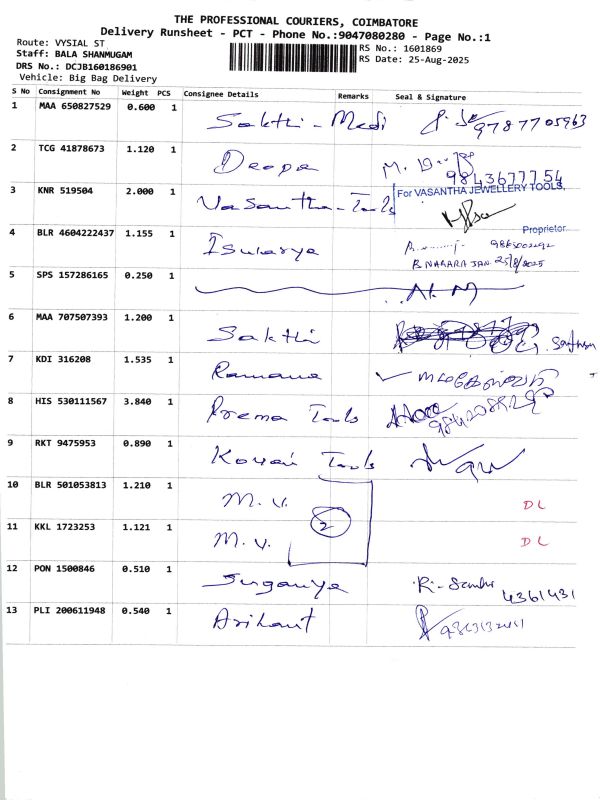 THE PROFESSIONAL COURIERS, COIMBATORE
Delivery Runsheet - PCT - Phone No.:9047080280 - Page No.:1
Route: VYSIAL ST
Staff: BALA SHANMUGAM
RS No.: 1601869
DRS No.: DCJB160186901
RS Date: 25-Aug-2025
Vehicle: Big Bag Delivery
S No Consignment No Weight PCS Consignee Details Remarks Seal & Signature
1 MAA 650827529 0.600 1 Sakthi - Medi 9787705963
2 TCG 41878673 1.120 1 Deepa M. 9843677754
3 KNR 519504 2.000 1 Vasantha - Tools For VASANTHA JEWELLERY TOOLS,
Proprietor
4 BLR 4604222437 1.155 1 Isularya
B. NAGARAJAN 25/8/2025
5 SPS 157286165 0.250 1
6 MAA 707507393 1.200 1 Sakthi
7 KDI 316208 1.535 1 Ramana
8 HIS 530111567 3.840 1 Prema Tools
9 RKT 9475953 0.890 1 Kovai Tools
10 BLR 501053813 1.210 1 M. V. DL
2
11 KKL 1723253 1.121 1 M. V. DL
12 PON 1500846 0.510 1 Suganya R. 4361431
13 PLI 200611948 0.540 1 Arihant